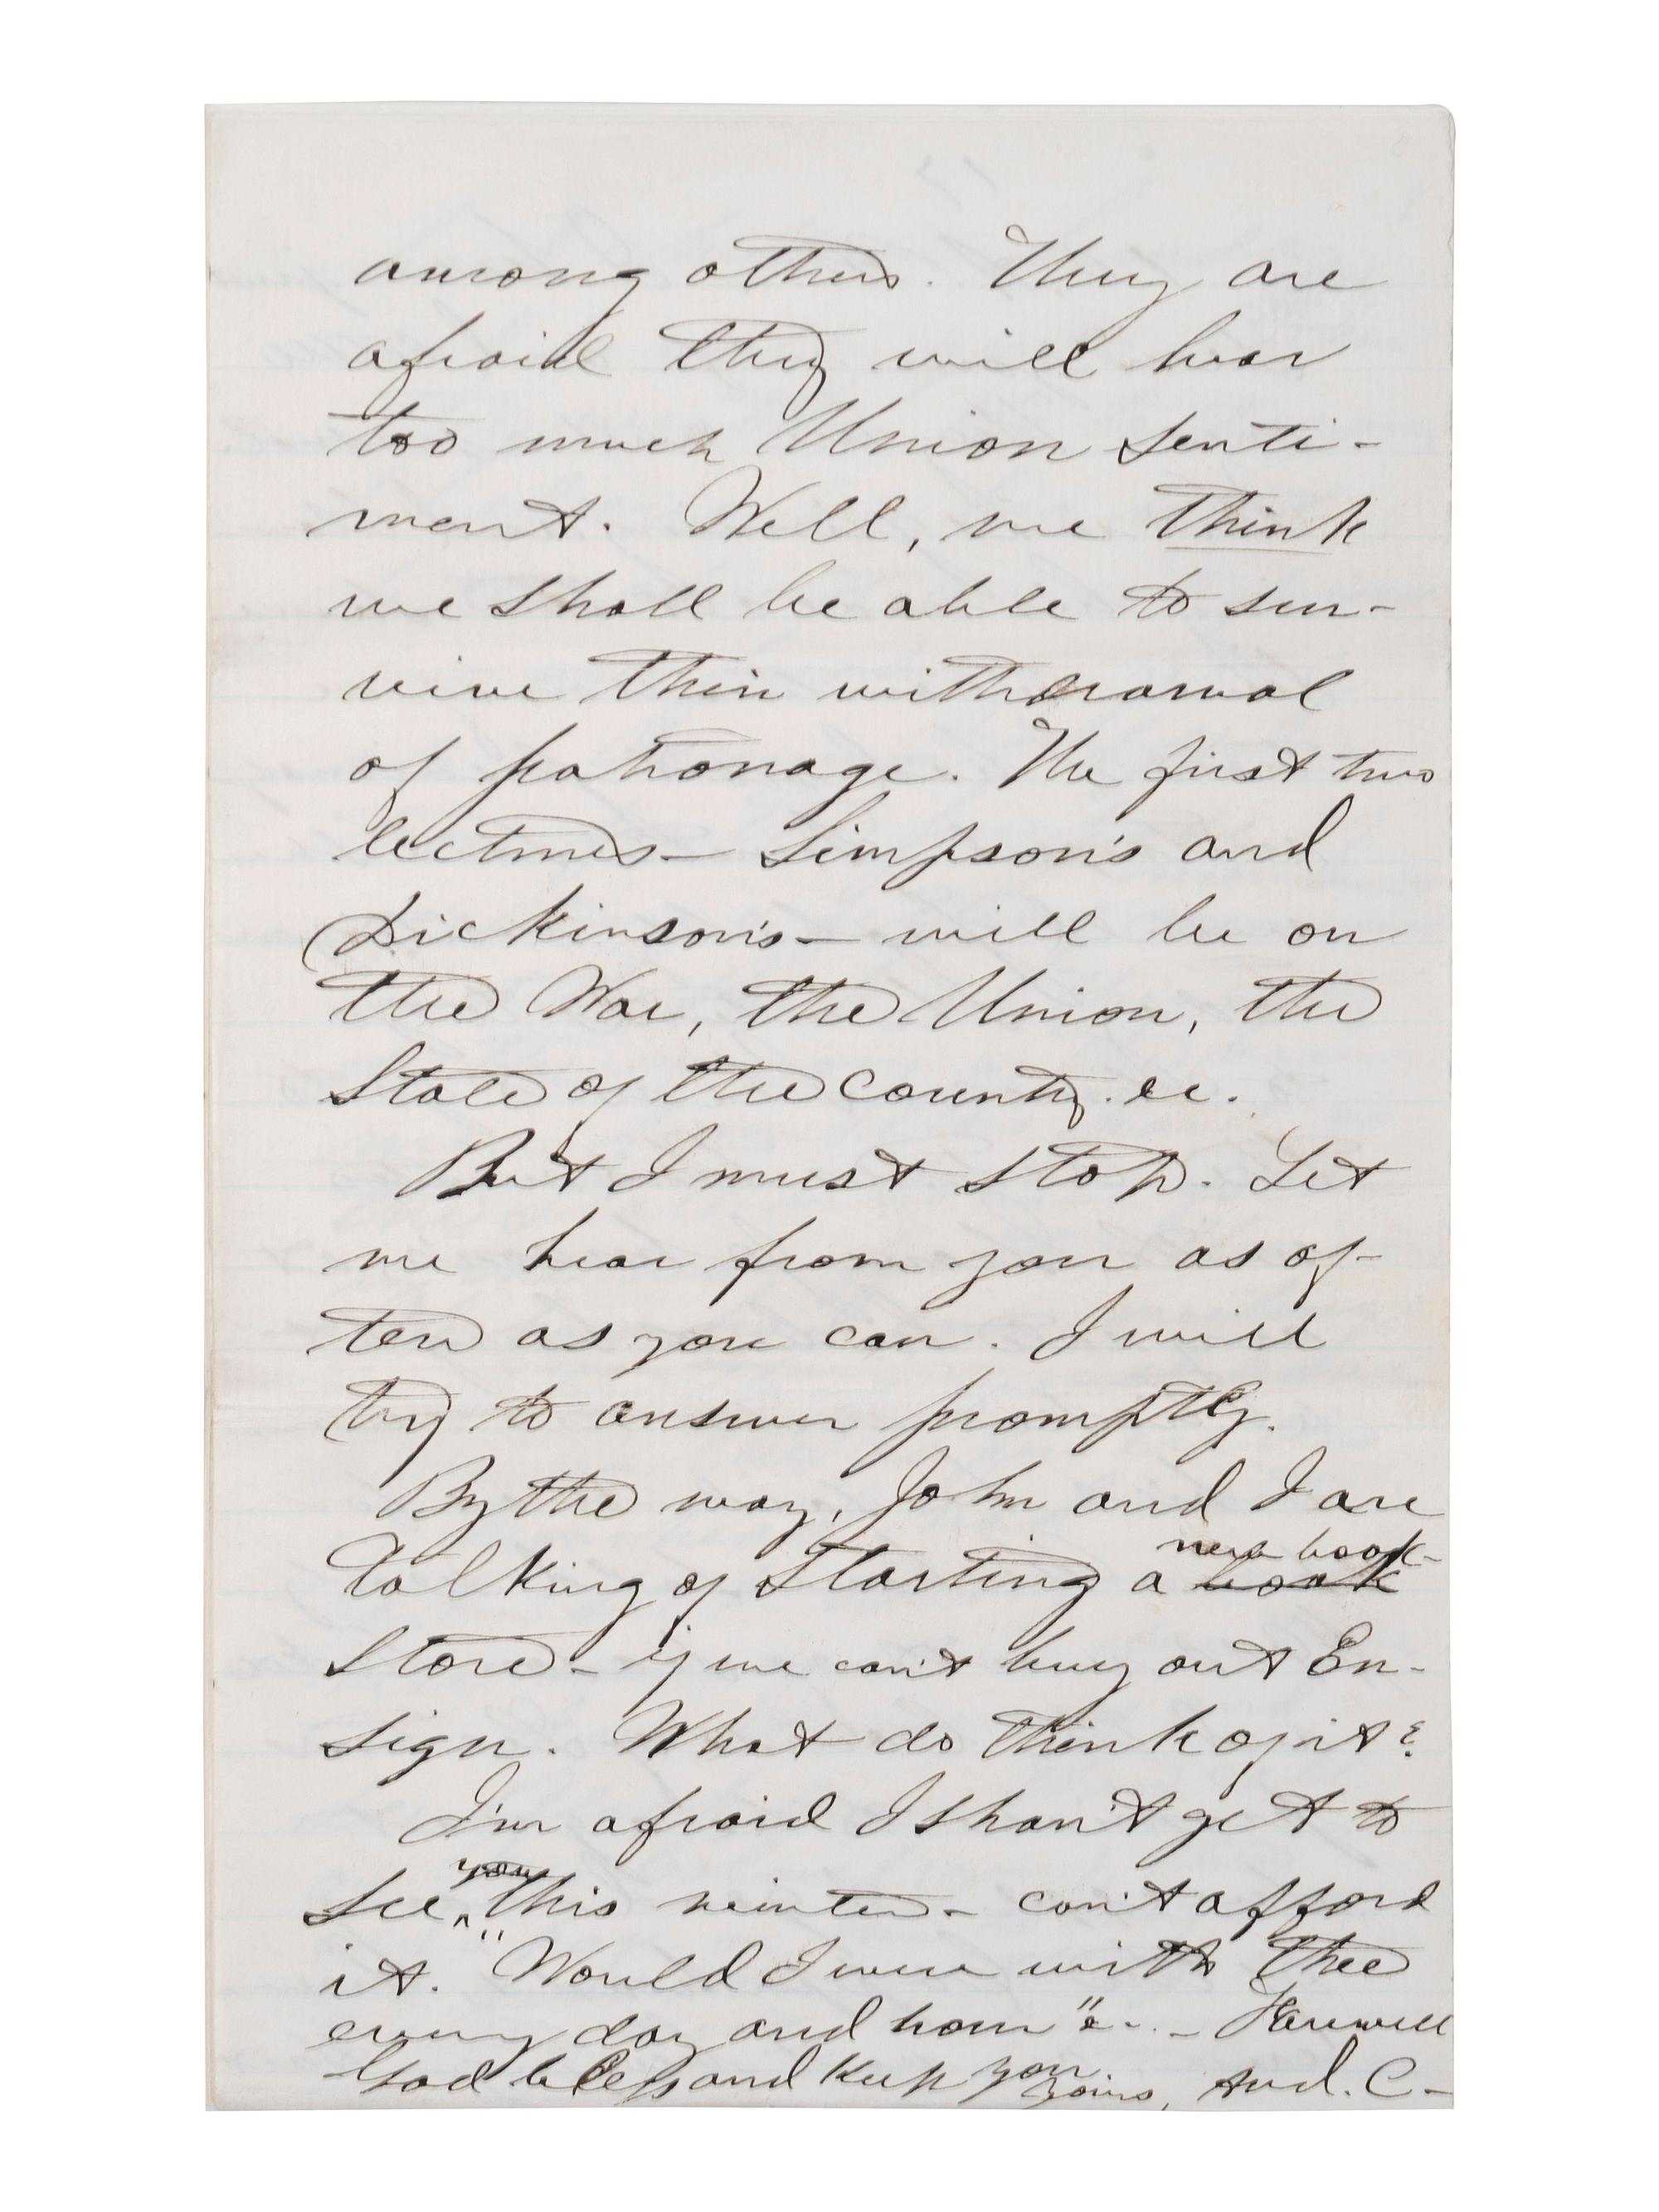 among others. They are
afraid they will hear
too much Union senti-
ment. Well, we think
we shall be able to sur-
vive their withdrawal
of patronage. The first two
lectures — Simpson's and
Dickinson's — will be on
the War, the Union, the
State of the Country. &c.
But I must stop. Let
me hear from you as of-
ten as you can. I will
try to answer promptly.
By the way, John and I are
new book-
talking of starting a book
store — if we can't buy out En-
sign. What do think of it?
I'm afraid I shan't get to
you
see this winter — can't afford
it. "Would I were with thee
every day and hour" &c. — Farewell
God bless and keep you
Yours, And. C —